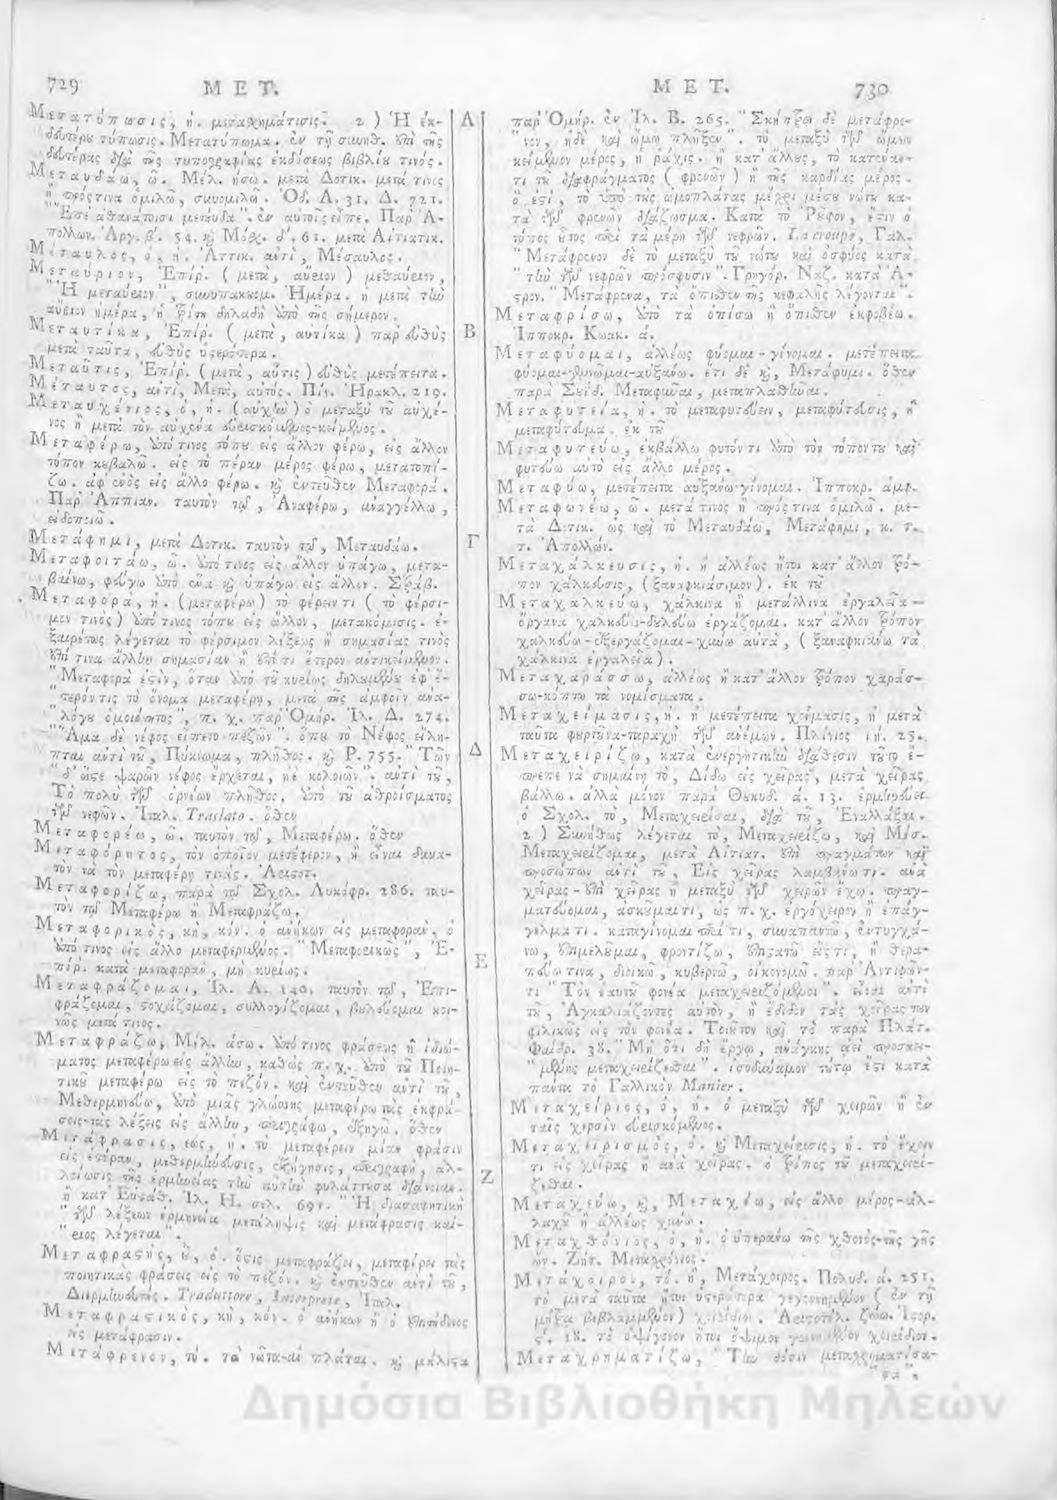 729 ΜΕΤ.
Μετατύπωσις, ἡ. μετασχημάτισις. 2) Ἡ ἐκ-
δευτέρου τύπωσις. Μετατύπωμα. ἐν τῇ συνηθ. ἐπὶ τῆς
δευτέρας διὰ τῆς τυπογραφίας ἐκδόσεως βιβλίου τινός.
Μεταυδάω, ῶ. Μέλ. ήσω. μετὰ Δοτικ. μετά τινος
ἢ πρός τινα ὁμιλῶ, συνομιλῶ. Ὀδ. Α. 31. Δ. 721.
"Ἔπε' ἀθανάτοισι μετηύδα". ἐν αὐτοῖς εἶπε. Παρ' Ἀ-
πολλων. Ἀργ. β'. 54. καὶ Μόσχ. δ'. 61. μετὰ Αἰτιατικ.
Μέταυλος, ὁ, ἡ. Ἀττικ. ἀντὶ, Μέσαυλος.
Μεταύριον, Ἐπίρ. (μετὰ, αὔριον) μεθαύριον,
"Ἡ μεταύριον", συνυπακουομ. Ἡμέρα. ἡ μετὰ τὴν
αὔριον ἡμέρα, ἡ τρίτη δηλαδὴ ἀπὸ τῆς σήμερον.
Μεταυτίκα, Ἐπίρ. (μετὰ, αὐτίκα) παρευθὺς
μετὰ ταῦτα, εὐθὺς ὑστερότερα.
Μεταῦτις, Ἐπίρ. (μετὰ, αὖτις) εὐθὺς μετέπειτα.
Μέταυτος, ἀντὶ, Μετὰ, αὐτός. Πίν. Ἡρακλ. 219.
Μεταυχένιος, ὁ, ἡ. (αὐχὴν) ὁ μεταξὺ τοῦ αὐχέ-
νος ἢ μετὰ τὸν αὐχένα εὑρισκόμενος-κείμενος.
Μεταφέρω, ἀπό τινος τόπου εἰς ἄλλον φέρω, εἰς ἄλλον
τόπον κουβαλῶ. εἰς τὸ πέραν μέρος φέρω, μετατοπί-
ζω. ἀφ' ἑνὸς εἰς ἄλλο φέρω. καὶ ἐντεῦθεν Μεταφορά.
Παρ' Ἀππιαν. ταυτὸν τῷ, Ἀναφέρω, ἀναγγέλλω,
εἰδοποιῶ.
Μετάφημι, μετὰ Δοτικ. ταυτὸν τῷ, Μεταυδάω.
Μεταφοιτάω, ῶ. ἀπό τινος εἰς ἄλλον ὑπάγω, μετα-
βαίνω, φεύγω ἀπὸ ἕνα καὶ ὑπάγω εἰς ἄλλον. Στράβ.
Μεταφορὰ, ἡ. (μεταφέρω) τὸ φέρειν τι (τὸ φέρσι-
μον τινὸς) ἀπό τινος τόπου εἰς ἄλλον, μετακόμισις. ἐ-
ξαιρέτως λέγεται τὸ φέρσιμον λέξεως ἢ σημασίας τινὸς
ἐπί τινα ἄλλην σημασίαν ἢ ἐπί τι ἕτερον ἀντικείμενον.
"Μεταφορά ἐστιν, ὅταν ἀπὸ τοῦ κυρίως δηλουμένου ἐφ' ἕ-
"τερόν τις τὸ ὄνομα μεταφέρῃ, μετὰ τῆς ἀμφοῖν ἀνα-
"λόγου ὁμοιότητος", π. χ. παρ' Ὁμήρ. Ἰλ. Δ. 274.
""Ἅμα δὲ νέφος εἵπετο πεζῶν". ὅπου τὸ Νέφος εἴλη-
πται ἀντὶ τοῦ, Πύκνωμα, πλῆθος. καὶ Ρ. 755. "Τῶν
"δ' ὥστε ψαρῶν νέφος ἔρχεται, ἠὲ κολοιῶν". ἀντὶ τοῦ,
Τὸ πολὺ τῶν ὀρνέων πλῆθος, ἀπὸ τοῦ ἀθροίσματος
τῶν νεφῶν. Ἰταλ. Traslato. ὅθεν
Μεταφορέω, ῶ. ταυτὸν τῷ, Μεταφέρω. ὅθεν
Μεταφόρητος, τὸν ὁποῖον μετέφερον, ἢ εἶναι δυνα-
τὸν νὰ τὸν μεταφέρῃ τινάς. Ἀριστοτ.
Μεταφορίζω, παρὰ τῷ Σχολ. Λυκόφρ. 286. ταυ-
τὸν τῷ Μεταφέρω ἢ Μεταφράζω.
Μεταφορικὸς, κὴ, κόν. ὁ ἀνήκων εἰς μεταφορὰν, ὁ
ἀπό τινος εἰς ἄλλο μεταφερόμενος. "Μεταφορικῶς", Ἐ-
πίρ. κατὰ μεταφορὰν, μὴ κυρίως.
Μεταφράζομαι, Ἰλ. Α. 140. ταυτὸν τῷ, Ἐπι-
φράζομαι, στοχάζομαι, συλλογίζομαι, βουλεύομαι κοι-
νῶς μετά τινος.
Μεταφράζω, Μέλ. άσω. ἀπό τινος φράσεως ἢ ἰδιώ-
ματος μεταφέρω εἰς ἄλλην, καθὼς π. χ. ἀπὸ τοῦ Ποιη-
τικοῦ μεταφέρω εἰς τὸ πεζόν. καὶ ἐντεῦθεν ἀντὶ τοῦ,
Μεθερμηνεύω, ἀπὸ μιᾶς γλώσσης μεταφέρω τὰς ἐκφρά-
σεις-τὰς λέξεις εἰς ἄλλην, περιγράφω, ἐξηγῶ. ὅθεν
Μετάφρασις, εως, ἡ. τὸ μεταφέρειν μίαν φράσιν
εἰς ἑτέραν, μεθερμήνευσις, ἐξήγησις, περιγραφὴ, ἀλ-
λοίωσις τῆς ἑρμηνείας τὴν αὐτὴν φυλάττουσα διάνοιαν.
ἢ κατ' Εὐσταθ. Ἰλ. Η. σελ. 691. "Ἡ διασαφητικὴ
"τῶν λέξεων ἑρμηνεία μετάληψις καὶ μετάφρασις καί-
"ριος λέγεται".
Μεταφραστὴς, οῦ, ὁ. ὅστις μεταφράζει, μεταφέρει τὰς
ποιητικὰς φράσεις εἰς τὸ πεζόν. καὶ ἐντεῦθεν ἀντὶ τοῦ,
Διερμηνευτής. Traduttore, Interprete, Ἰταλ.
Μεταφραστικὸς, κὴ, κόν. ὁ ἀνήκων ἢ ὁ ἐπιτήδειος
εἰς μετάφρασιν.
Μετάφρενον, τό. τὰ νῶτα-αἱ πλάται. καὶ μάλιστα
Α
Β
Γ
Δ
Ε
Ζ
ΜΕΤ. 730
παρ' Ὁμήρ. ἐν Ἰλ. Β. 265. "Σκήπτρῳ δὲ μετάφρε-
"νον, ἠδὲ καὶ ὤμω πλῆξεν". τὸ μεταξὺ τῶν ὤμων
κείμενον μέρος, ἡ ῥάχις. ἢ κατ' ἄλλους, τὸ κατέναν-
τι τοῦ διαφράγματος (φρενῶν) ἢ τῆς καρδίας μέρος.
ὅ ἐστι, τὸ ὑπὸ τὰς ὠμοπλάτας μέχρι μέσου νώτου κα-
τὰ τῶν φρενῶν διάζωσμα. Κατὰ τὸ Ῥοῦφον, ἐστὶν ὁ
τόπος οὗτος περὶ τὰ μέρη τῶν νεφρῶν. La croupe, Γαλ.
"Μετάφρενον δὲ τὸ μεταξὺ τοῦ νώτου καὶ ὀσφύος κατὰ
"τὴν τῶν νεφρῶν πρόσφυσιν". Γρηγόρ. Ναζ. κατὰ Ἀ-
στρον. "Μετάφρενα, τὰ ὄπισθεν τῆς κεφαλῆς λέγονται".
Μεταφρίσω, ἀπὸ τὰ ὀπίσω ἢ ὄπισθεν ἐκφοβέω.
Ἱπποκρ. Κωακ. ά.
Μεταφύομαι, ἀλλέως φύομαι-γίνομαι. μετέπειτα
φύομαι-γεννῶμαι-αὐξάνω. ἔτι δὲ καὶ, Μετάφυμι. ὅθεν
παρὰ Σουΐδ. Μεταφῦναι, μεταπλασθῆναι.
Μεταφυτεία, ἡ. τὸ μεταφυτεύειν, μεταφύτευσις, ἢ
μεταφύτευμα. ἐκ τοῦ
Μεταφυτεύω, ἐκβάλλω φυτόν τι ἀπὸ τὸν τόπον του καὶ
φυτεύω αὐτὸ εἰς ἄλλο μέρος.
Μεταφύω, μετέπειτα αὐξάνω-γίνομαι. Ἱπποκρ. ἀμφ.
Μεταφωνέω, ῶ. μετά τινος ἢ πρός τινα ὁμιλῶ. με-
τὰ Δοτικ. ὡς καὶ τὸ Μεταυδάω, Μετάφημι, κ. τ.
τ. Ἀπολλών.
Μεταχάλκευσις, ἡ. ἡ ἀλλέως ἤτοι κατ' ἄλλον τρό-
πον χάλκευσις, (ξαναφκιάσιμον). ἐκ τοῦ
Μεταχαλκεύω, χάλκινα ἢ μετάλλινα ἐργαλεῖα-
ὄργανα χαλκεύω-δουλεύω ἐργάζομαι. κατ' ἄλλον τρόπον
χαλκεύω-ἐξεργάζομαι-χύνω αὐτὰ, (ξαναφκιάνω τὰ
χάλκινα ἐργαλεῖα).
Μεταχαράσσω, ἀλλέως ἢ κατ' ἄλλον τρόπον χαράσ-
σω-κόπτω τὰ νομίσματα.
Μεταχείμασις, ἡ. ἡ μετέπειτα χείμασις, ἡ μετὰ
ταῦτα φερτύνα-ταραχὴ τῶν ἀνέμων. Πλίνιος ιή. 25.
Μεταχειρίζω, κατὰ ἐνεργητικὴν διάθεσιν τοῦτο ἔ-
πρεπε νὰ σημαίνῃ τὸ, Δίδω εἰς χεῖρας, μετὰ χεῖρας
βάλλω. ἀλλὰ μόνον παρὰ Θουκυδ. ά. 13. ἑρμηνεύει
ὁ Σχολ. τὸ, Μεταχειρίσαι, διὰ τοῦ, Ἐναλλάξαι.
2) Συνήθως λέγεται τὸ, Μεταχειρίζω, καὶ Μέσ.
Μεταχειρίζομαι, μετὰ Αἰτιατ. ἐπὶ πραγμάτων καὶ
προσώπων ἀντὶ τοῦ, Εἰς χεῖρας λαμβάνω τι. ἀνὰ
χεῖρας-ἐπὶ χεῖρας ἢ μεταξὺ τῶν χειρῶν ἔχω. πραγ-
ματεύομαι, ἀσκοῦμαί τι, ὡς π. χ. ἐργόχειρον ἢ ἐπάγ-
γελμά τι. καταγίνομαι περί τι, συναπαντῶ, ἐντυγχά-
νω, ἐπιμελοῦμαι, φροντίζω, ἐπιστατῶ εἴς τι, ἢ θερα-
πεύω τινα, διοικῶ, κυβερνῶ, οἰκονομῶ. παρ' Ἀντιφῶν-
τι "Τὸν ἑαυτοῦ φονέα μεταχειριζόμενοι". εἶναι ἀντὶ
τοῦ, Ἀγκαλιάζοντες αὐτὸν, ἢ ἔδιδον τὰς χεῖράς των
φιλικῶς εἰς τὸν φονέα. Τοιοῦτον καὶ τὸ παρὰ Πλάτ.
Φαίδρ. 38. "Μὴ ὅτι δὴ ἔργῳ, ἀνάγκης ἀεὶ προσκει-
"μένης μεταχειρίζεσθαι". ἰσοδύναμον τούτῳ ἐστὶ κατὰ
πάντα τὸ Γαλλικὸν Manier.
Μεταχείριος, ὁ, ἡ. ὁ μεταξὺ τῶν χειρῶν ἢ ἐν
ταῖς χερσὶν εὑρισκόμενος.
Μεταχειρισμὸς, ὁ. καὶ Μεταχείρισις, ἡ. τὸ ἔχειν
τι εἰς χεῖρας ἢ ἀνὰ χεῖρας. ὁ τρόπος τοῦ μεταχειρί-
ζεσθαι.
Μεταχεύω, καὶ, Μεταχέω, εἰς ἄλλο μέρος-ἀλ-
λαχοῦ ἢ ἀλλέως χύνω.
Μεταχθόνιος, ὁ, ἡ. ὁ ὑπεράνω τῆς χθονὸς-τῆς γῆς
ὤν. Ζήτ. Μεταχρόνιος.
Μετάχοιρον, τό. ἢ, Μετάχοιρος. Πολυδ. ά. 251.
τὸ μετὰ ταῦτα ἤτοι ὑστερότερα γεγεννημένον (ἐν τῇ
μήτρᾳ βεβλαμμένον) χοιρίδιον. Ἀριστοτέλ. ζώω. ἱστορ.
ς'. 18. τὸ ὀψίγονον ἤτοι ὄψιμον γεννηθὲν χοιρίδιον.
Μεταχρηματίζω, "Τὴν θέσιν μετασχηματίσα-
Δημόσια Βιβλιοθήκη Μηλεών